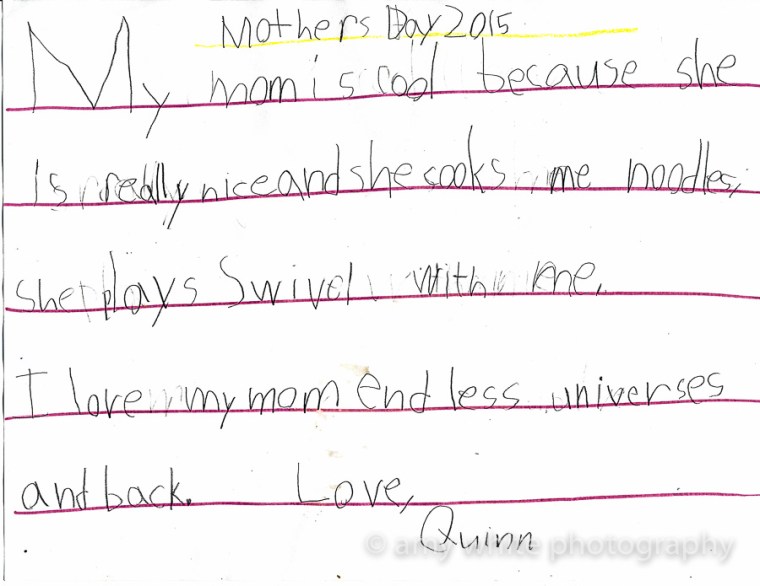 Mothers Day 2015
My mom is cool because she
is really nice and she cooks me noodles,
she plays Swivel with me.
I love my mom endless universes
and back. Love,
Quinn
© amy white photography